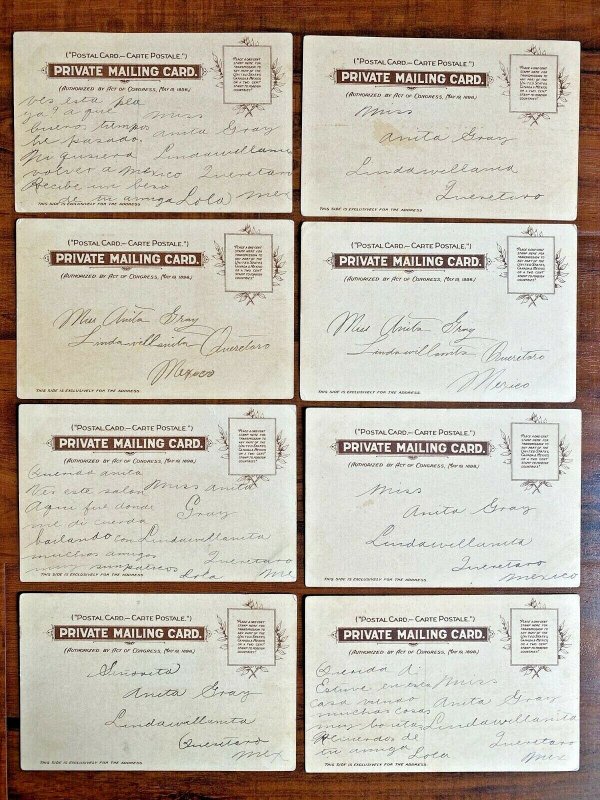 ("Postal Card.—Carte Postale.")
PRIVATE MAILING CARD.
(Authorized by Act of Congress, May 19, 1898.)
"Place a one cent
stamp here for
transmission to
any part of the
United States,
Canada & Mexico
or a two cent
stamp to foreign
countries"
Ves esta pla
ya? a que
buenos tiempos
he pasado.
Ni quisiera
volver a Mexico
Recibe un beso
de tu amiga Lola
Miss
Anita Gray
Lindavillanita
Queretaro
Mex
This side is exclusively for the address.
("Postal Card.—Carte Postale.")
PRIVATE MAILING CARD.
(Authorized by Act of Congress, May 19, 1898.)
"Place a one cent
stamp here for
transmission to
any part of the
United States,
Canada & Mexico
or a two cent
stamp to foreign
countries"
Miss
Anita Gray
Lindavillanita
Queretaro
This side is exclusively for the address.
("Postal Card.—Carte Postale.")
PRIVATE MAILING CARD.
(Authorized by Act of Congress, May 19, 1898.)
"Place a one cent
stamp here for
transmission to
any part of the
United States,
Canada & Mexico
or a two cent
stamp to foreign
countries"
Miss Anita Gray
Lindavillanita Queretaro
Mexico
This side is exclusively for the address.
("Postal Card.—Carte Postale.")
PRIVATE MAILING CARD.
(Authorized by Act of Congress, May 19, 1898.)
"Place a one cent
stamp here for
transmission to
any part of the
United States,
Canada & Mexico
or a two cent
stamp to foreign
countries"
Miss Anita Gray
Lindavillanita Queretaro
Mexico
This side is exclusively for the address.
("Postal Card.—Carte Postale.")
PRIVATE MAILING CARD.
(Authorized by Act of Congress, May 19, 1898.)
"Place a one cent
stamp here for
transmission to
any part of the
United States,
Canada & Mexico
or a two cent
stamp to foreign
countries"
Querida Anita
Ves este salon
Aqui fue donde
me di cuerda
bailando con
muchos amigos
muy simpaticos
Lola
Miss Anita
Gray
Lindavillanita
Queretaro
Mex
This side is exclusively for the address.
("Postal Card.—Carte Postale.")
PRIVATE MAILING CARD.
(Authorized by Act of Congress, May 19, 1898.)
"Place a one cent
stamp here for
transmission to
any part of the
United States,
Canada & Mexico
or a two cent
stamp to foreign
countries"
Miss
Anita Gray
Lindavillanita
Queretaro
Mexico
This side is exclusively for the address.
("Postal Card.—Carte Postale.")
PRIVATE MAILING CARD.
(Authorized by Act of Congress, May 19, 1898.)
"Place a one cent
stamp here for
transmission to
any part of the
United States,
Canada & Mexico
or a two cent
stamp to foreign
countries"
Señorita
Anita Gray
Lindavillanita
Queretaro
Mex
This side is exclusively for the address.
("Postal Card.—Carte Postale.")
PRIVATE MAILING CARD.
(Authorized by Act of Congress, May 19, 1898.)
"Place a one cent
stamp here for
transmission to
any part of the
United States,
Canada & Mexico
or a two cent
stamp to foreign
countries"
Querida A.
Estuve en esta
casa viendo
muchas cosas
muy bonitas
Recuerdos de
tu amiga
Lola
Miss
Anita Gray
Lindavillanita
Queretaro
Mex
This side is exclusively for the address.